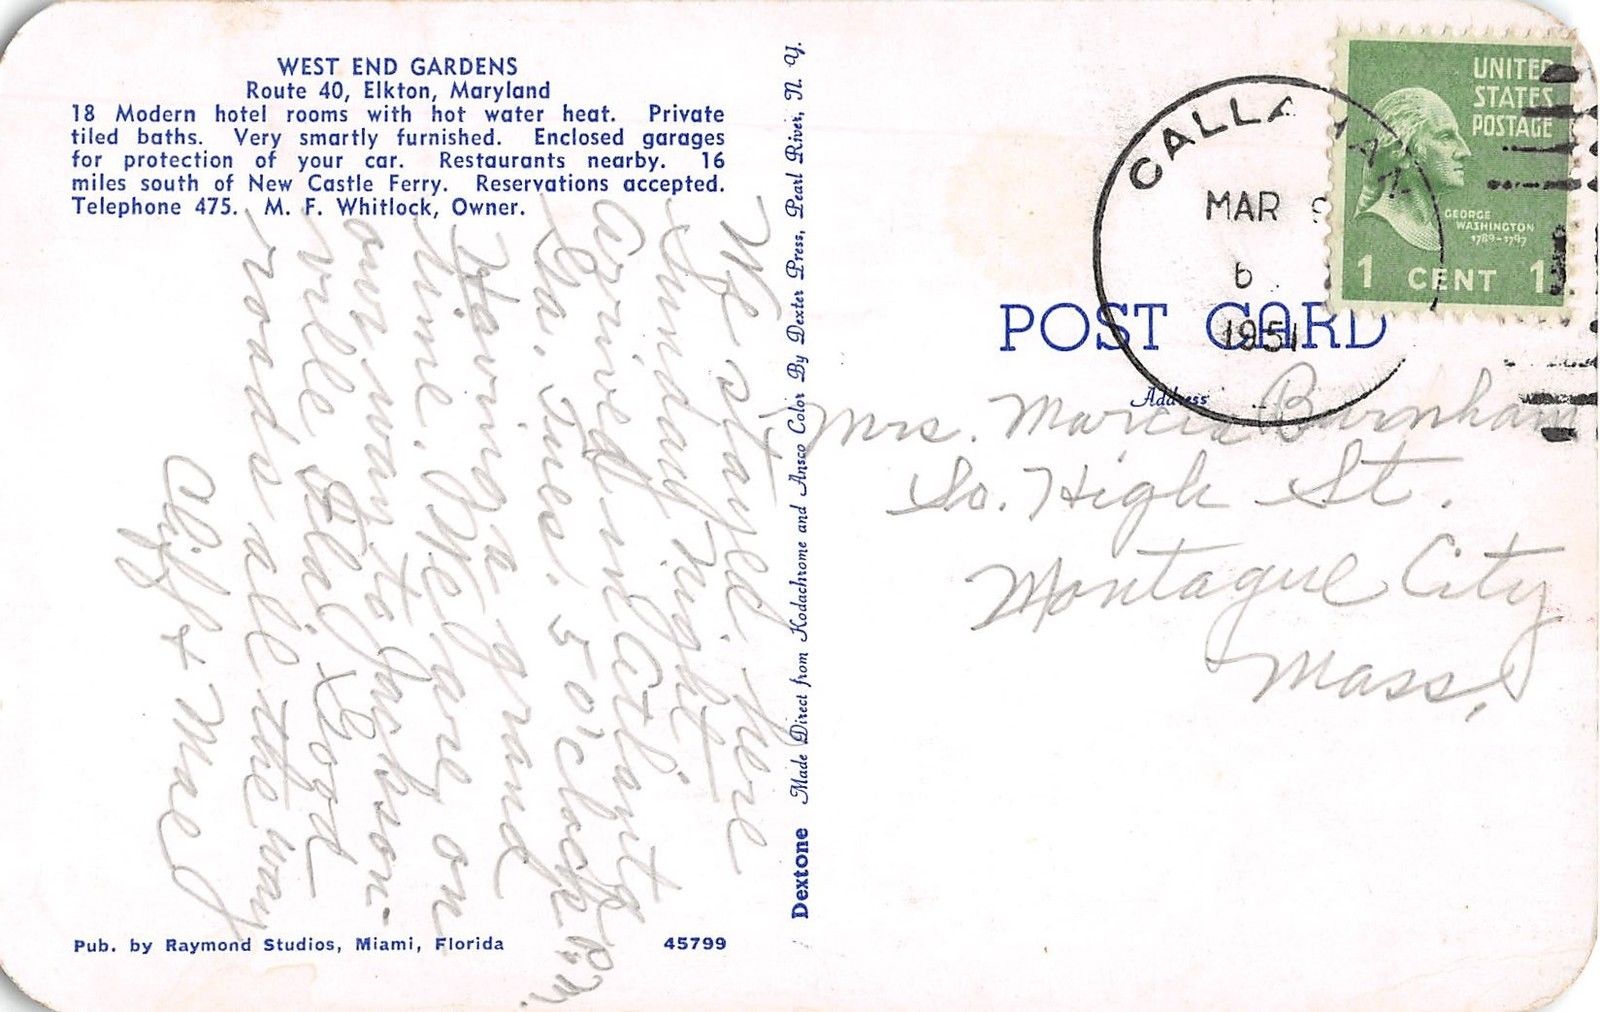 WEST END GARDENS
Route 40, Elkton, Maryland
18 Modern hotel rooms with hot water heat. Private
tiled baths. Very smartly furnished. Enclosed garages
for protection of your car. Restaurants nearby. 16
miles south of New Castle Ferry. Reservations accepted.
Telephone 475. M. F. Whitlock, Owner.
We stayed here
Sunday night
Arrived in Atlanta
Ga. Tues. 5 o'clock P.M.
Having a grand
time. We are on
our way to Jackson-
ville Fla. & Good
roads all the way
Cliff & Mae
Pub. by Raymond Studios, Miami, Florida
45799
Dextone Made Direct from Kodachrome and Ansco Color By Dexter Press, Pearl River, N. Y.
MAR
6
1951
UNITED
STATES
POSTAGE
GEORGE
WASHINGTON
1789-1797
1 CENT 1
POST CARD
Address
Mrs. Marcia Burnham
So. High St.
Montague City
Mass.